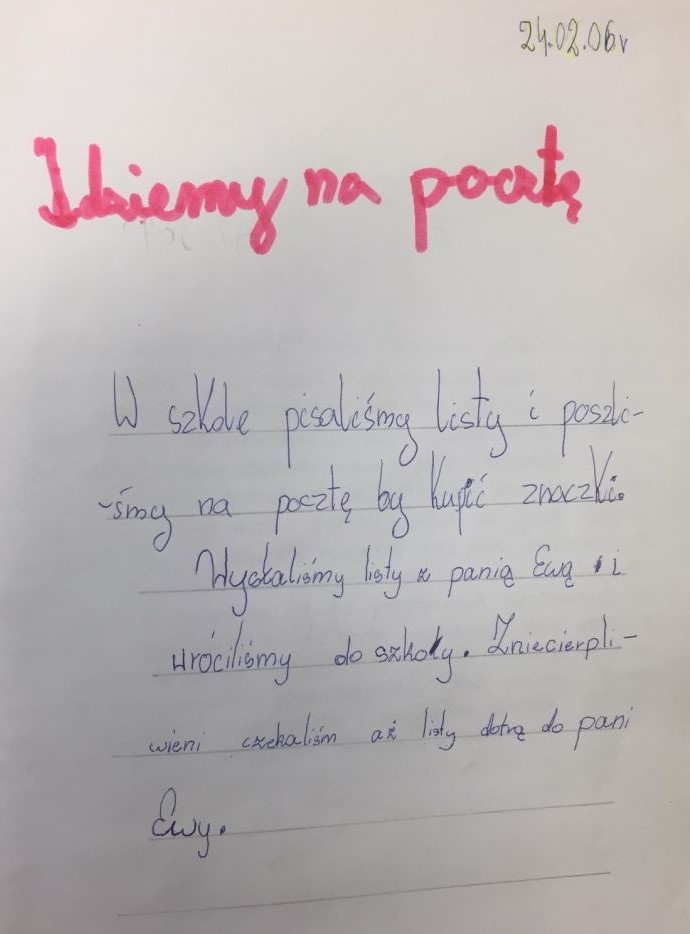 24.02.06r
Idziemy na pocztę
W szkole pisaliśmy listy i poszli-
-śmy na pocztę by kupić znaczki.
Wysłaliśmy listy z panią Ewą i
wróciliśmy do szkoły. Zniecierpli-
wieni czekaliśm aż listy dotrą do pani
Ewy.